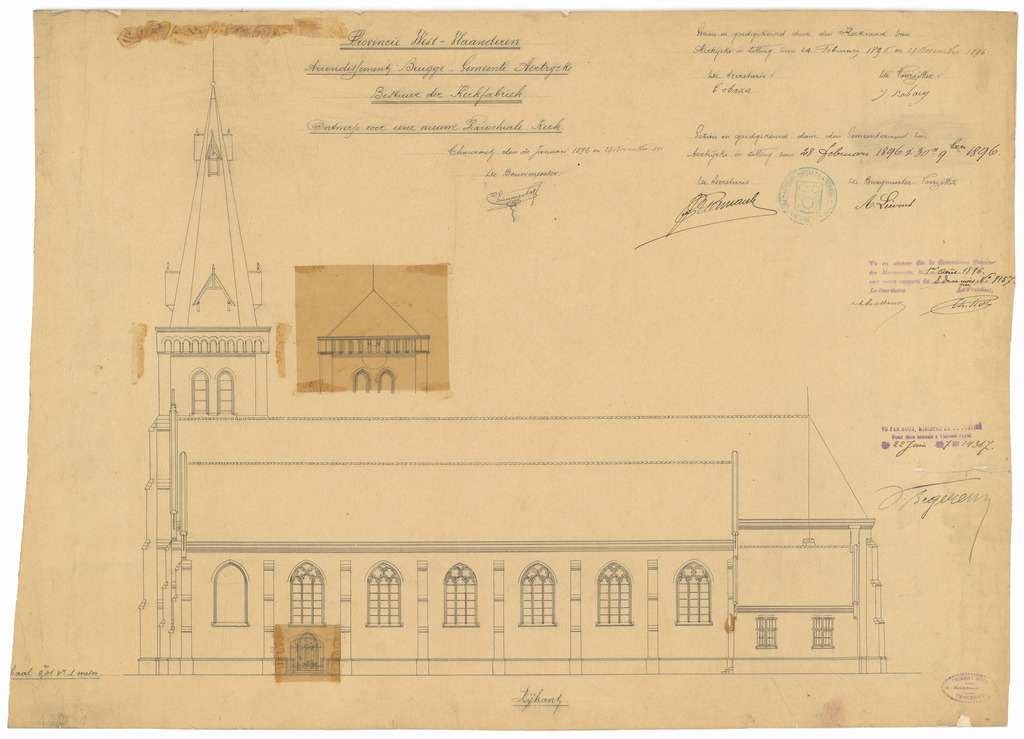 Provincie West-Vlaanderen
Arrondissement Brugge. Gemeente Aertrycke
Bestuur der Kerkfabriek.
Ontwerp voor eene nieuwe Parochiale Kerk.
den 20 Januari 1896 en 28 November
De Bouwmeester.
Gezien en goedgekeurd door den Kerkraad van
Aertrycke in zitting van 24 February 1896 en 29 November 1896
De Secretaris
De Voorzitter
Gezien en goedgekeurd door den Gemeenteraad van
Aertrycke in zitting van 28 februari 1896 & 30n 9ber 1896.
De Secretaris
De Burgmeester-Voorzitter
A. Liévens
Vu en séance de la Commission Royale
des Monuments, le 1er Août 1896.
Le Secrétaire
Le Président,
VU PAR NOUS, MINISTRE DE LA JUSTICE
Pour être annexé à l'arrêté royal
22 Juin 14367
V. Begerem
Schaal 0,01 vr 1 meter
Zijkant